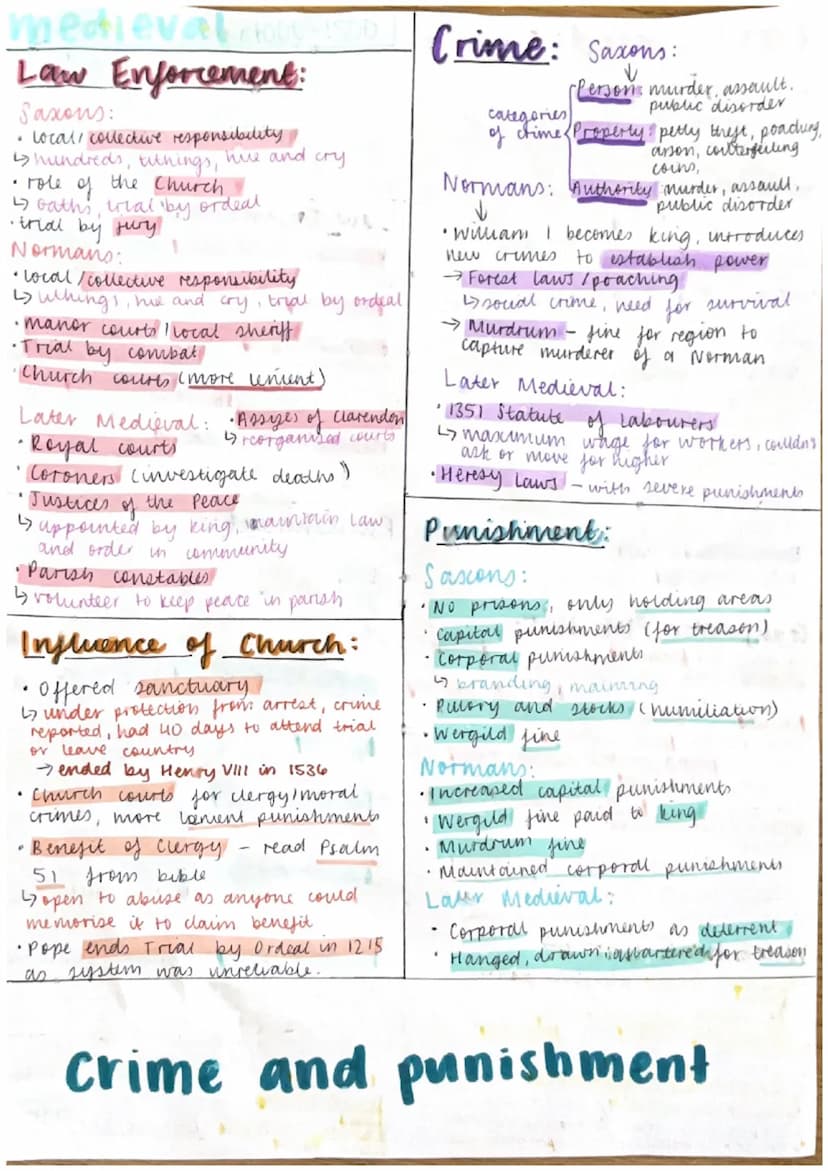 medieval
Law Enforcement:
Saxons:
· local/collective responsibility
↳ hundreds, tithings, hue and cry
· role of the Church
↳ oaths, trial by ordeal
· trial by jury
Normans:
· local/collective responsibility
↳ tithings, hue and cry, trial by ordeal
· manor courts/local sheriff
· Trial by combat
· Church courts (more lenient)
Later Medieval:
· Assizes of Clarendon
↳ reorganised courts
· Royal courts
· Coroners (investigate deaths)
· Justices of the Peace
↳ appointed by king, maintain law
and order in community
· Parish constables
↳ volunteer to keep peace in parish
Influence of Church:
· Offered sanctuary
↳ under protection from arrest, crime
reported, had 40 days to attend trial
or leave country
→ ended by Henry VIII in 1536
· Church courts for clergy/moral
crimes, more lenient punishments
· Benefit of Clergy – read Psalm
51 from bible
↳ open to abuse as anyone could
memorise it to claim benefit
· Pope ends Trial by Ordeal in 1215
as system was unreliable.
Crime: Saxons:
categories
of crime
Person: murder, assault,
public disorder
Property: petty theft, poaching,
arson, counterfeiting
coins,
Authority: murder, assault,
public disorder
Normans:
· William I becomes king, introduces
new crimes to establish power
→ Forest laws/poaching
↳ social crime, need for survival
→ Murdrum – fine for region to
capture murderer of a Norman
Later Medieval:
· 1351 Statute of Labourers
↳ maximum wage for workers, couldn't
ask or move for higher
· Heresy Laws – with severe punishments
Punishment:
Saxons:
· No prisons, only holding areas
· capital punishments (for treason)
· Corporal punishments
↳ branding, maiming
· Pillory and stocks (humiliation)
· Wergild fine
Normans:
· Increased capital punishments
· Wergild fine paid to king
· Murdrum fine
· Maintained corporal punishments
Later Medieval:
· Corporal punishments as deterrent
· Hanged, drawn & quartered for treason
Crime and punishment